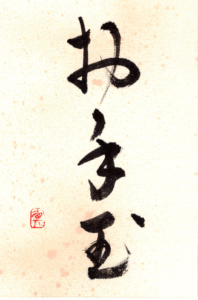 お手玉